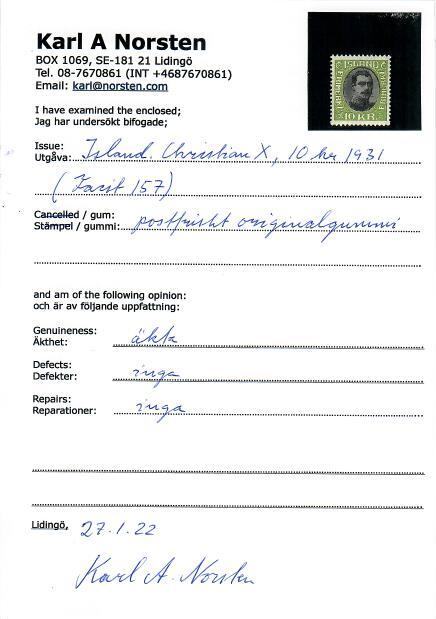 Karl A Norsten
BOX 1069, SE-181 21 Lidingö
Tel. 08-7670861 (INT +4687670861)
Email: karl@norsten.com
ISLAND
10 KR.
I have examined the enclosed;
Jag har undersökt bifogade;
Issue:
Utgåva: Island. Christian X, 10 kr 1931
(Facit 157)
Cancelled / gum:
Stämpel / gummi: postfriskt originalgummi
and am of the following opinion:
och är av följande uppfattning:
Genuineness:
Äkthet: äkta
Defects:
Defekter: inga
Repairs:
Reparationer: inga
Lidingö, 27.1.22
Karl A. Norsten